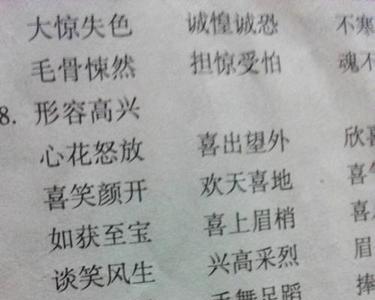 大惊失色 诚惶诚恐 不寒
毛骨悚然 担惊受怕 魂不
8. 形容高兴
心花怒放 喜出望外 欣喜
喜笑颜开 欢天喜地 喜气
如获至宝 喜上眉梢 喜
谈笑风生 兴高采烈 眉
手舞足蹈 捧